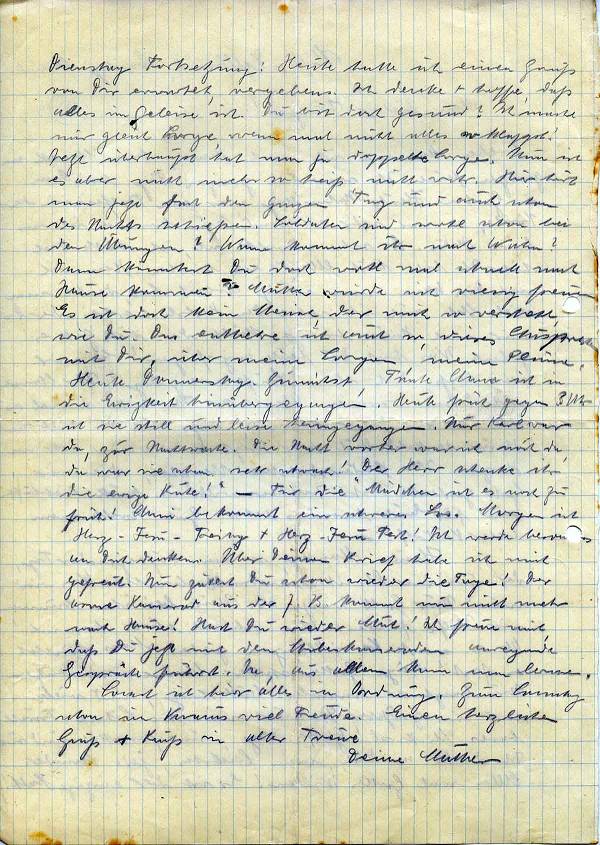 Dienstag Fortsetzung! Heute hatte ich einen Gruß
von Dir erwartet vergebens. Ich denke + hoffe, daß
alles im Geleise ist. Du bist doch gesund? Ich mache
mir gleich Sorge, wenn mal nicht alles klappt.
Jetzt überhaupt hat man ja doppelte Sorge. Nun ist
es aber nicht mehr so heiß nicht wahr. Hier hört
man jetzt fast den ganzen Tag und auch schon
des Nachts schießen. Soldaten sind wohl schon bei
den Übungen? Wann kommt Ihr nach
Dann könntest Du doch wohl mal schnell nach
Hause kommen? Mutter würde sich riesig freuen
Es ist doch kein Mensch der mich so versteht
wie Du. Das entbehre ich auch so dieses Aussprechen
mit Dir, über meine Sorgen, meine Pläne.
Heute Donnerstag. Zunächst, Tante Anna ist in
die Ewigkeit hinübergegangen. Heute früh gegen 3 Uhr
ist sie still und leise heimgegangen. Nur Karl war
da, zur Nachtwache. Die Nacht vorher war ich mit da,
da war sie schon sehr schwach! Der Herr schenke ihr
die ewige Ruhe!" – Für die Mädchen ist es noch zu
früh! Änni bekommt ein schweres Los. Morgen ist
Herz-Jesu-Freitag + Herz-Jesu Fest! Ich werde besonders
an Dich denken. Über Deinen Brief habe ich mich
gefreut. Nun zählst Du schon wieder die Tage! Der
arme Kamerad aus der J. B. kommt nun nicht mehr
nach Hause! Hast Du wieder Mut! Ich freue mich
daß Du jetzt mit den Stubenkameraden anregende
Gespräche führst. Na, aus allem kann man lernen.
Sonst ist hier alles in Ordnung. Zum Sonntag
schon im Voraus viel Freude. Einen herzlichen
Gruß + Kuß in alter Treue
Deine Mutter